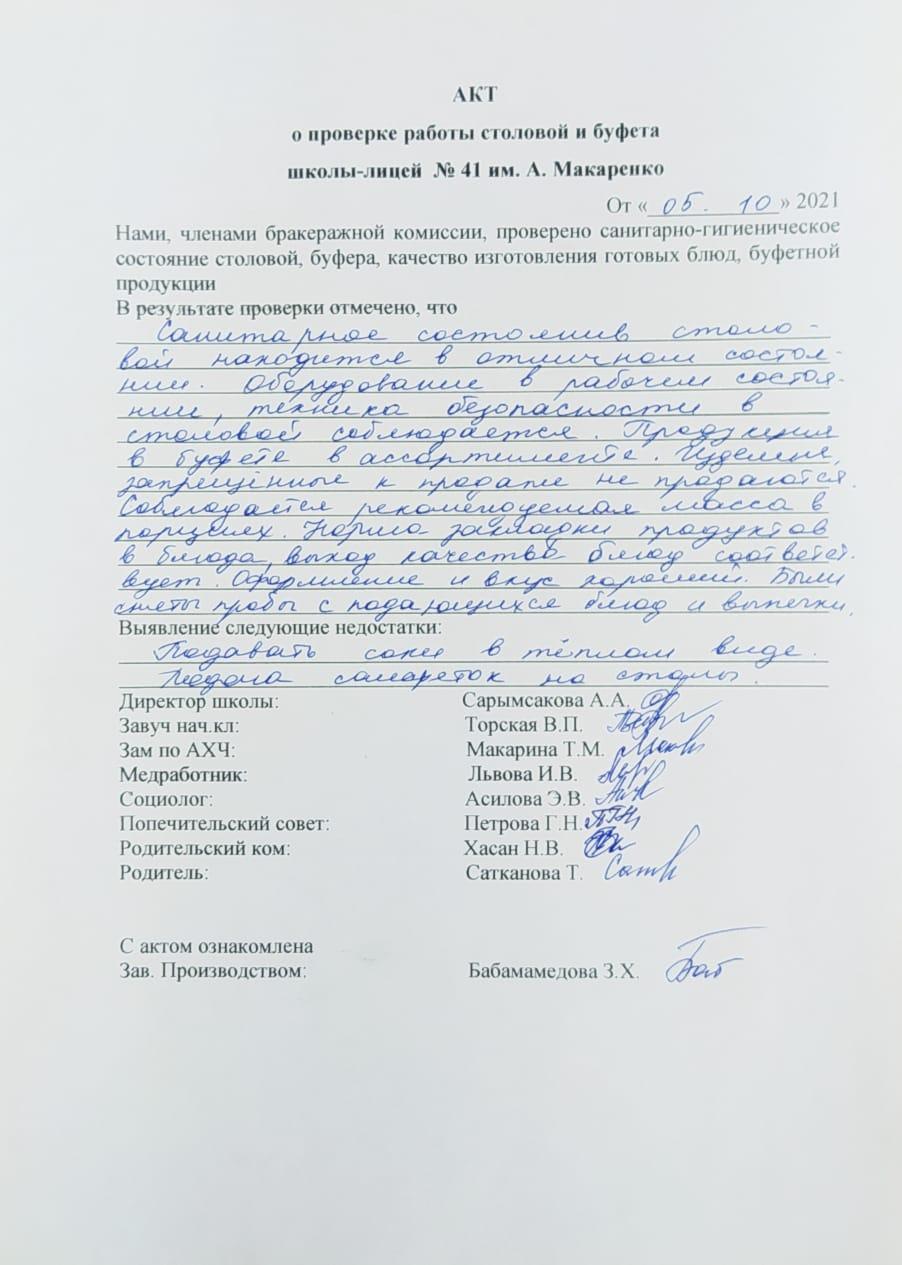 АКТ
о проверке работы столовой и буфета
школы-лицей № 41 им. А. Макаренко
От «05. 10» 2021
Нами, членами бракеражной комиссии, проверено санитарно-гигиеническое
состояние столовой, буфера, качество изготовления готовых блюд, буфетной
продукции
В результате проверки отмечено, что
Санитарное состояние столо-
вой находится в отличном состоя-
нии. Оборудование в рабочем состоя-
нии, техника безопасности в
столовой соблюдается. Продукция
в буфете в ассортименте. Изделие,
запрещённые к продаже не продаются.
Соблюдается рекомендуемая масса в
порциях. Норма закладки продуктов
в блюда, выход качество блюд соответст-
вует. Оформление и вкус хороший. Были
сняты пробы с подающихся блюд и выпечки.
Выявление следующие недостатки:
Подавать соки в тёплом виде.
Подача салфеток на столы.
Директор школы: Сарымсакова А.А.
Завуч нач.кл: Торская В.П.
Зам по АХЧ: Макарина Т.М.
Медработник: Львова И.В.
Социолог: Асилова Э.В.
Попечительский совет: Петрова Г.Н.
Родительский ком: Хасан Н.В.
Родитель: Сатканова Т.
С актом ознакомлена
Зав. Производством: Бабамамедова З.Х.